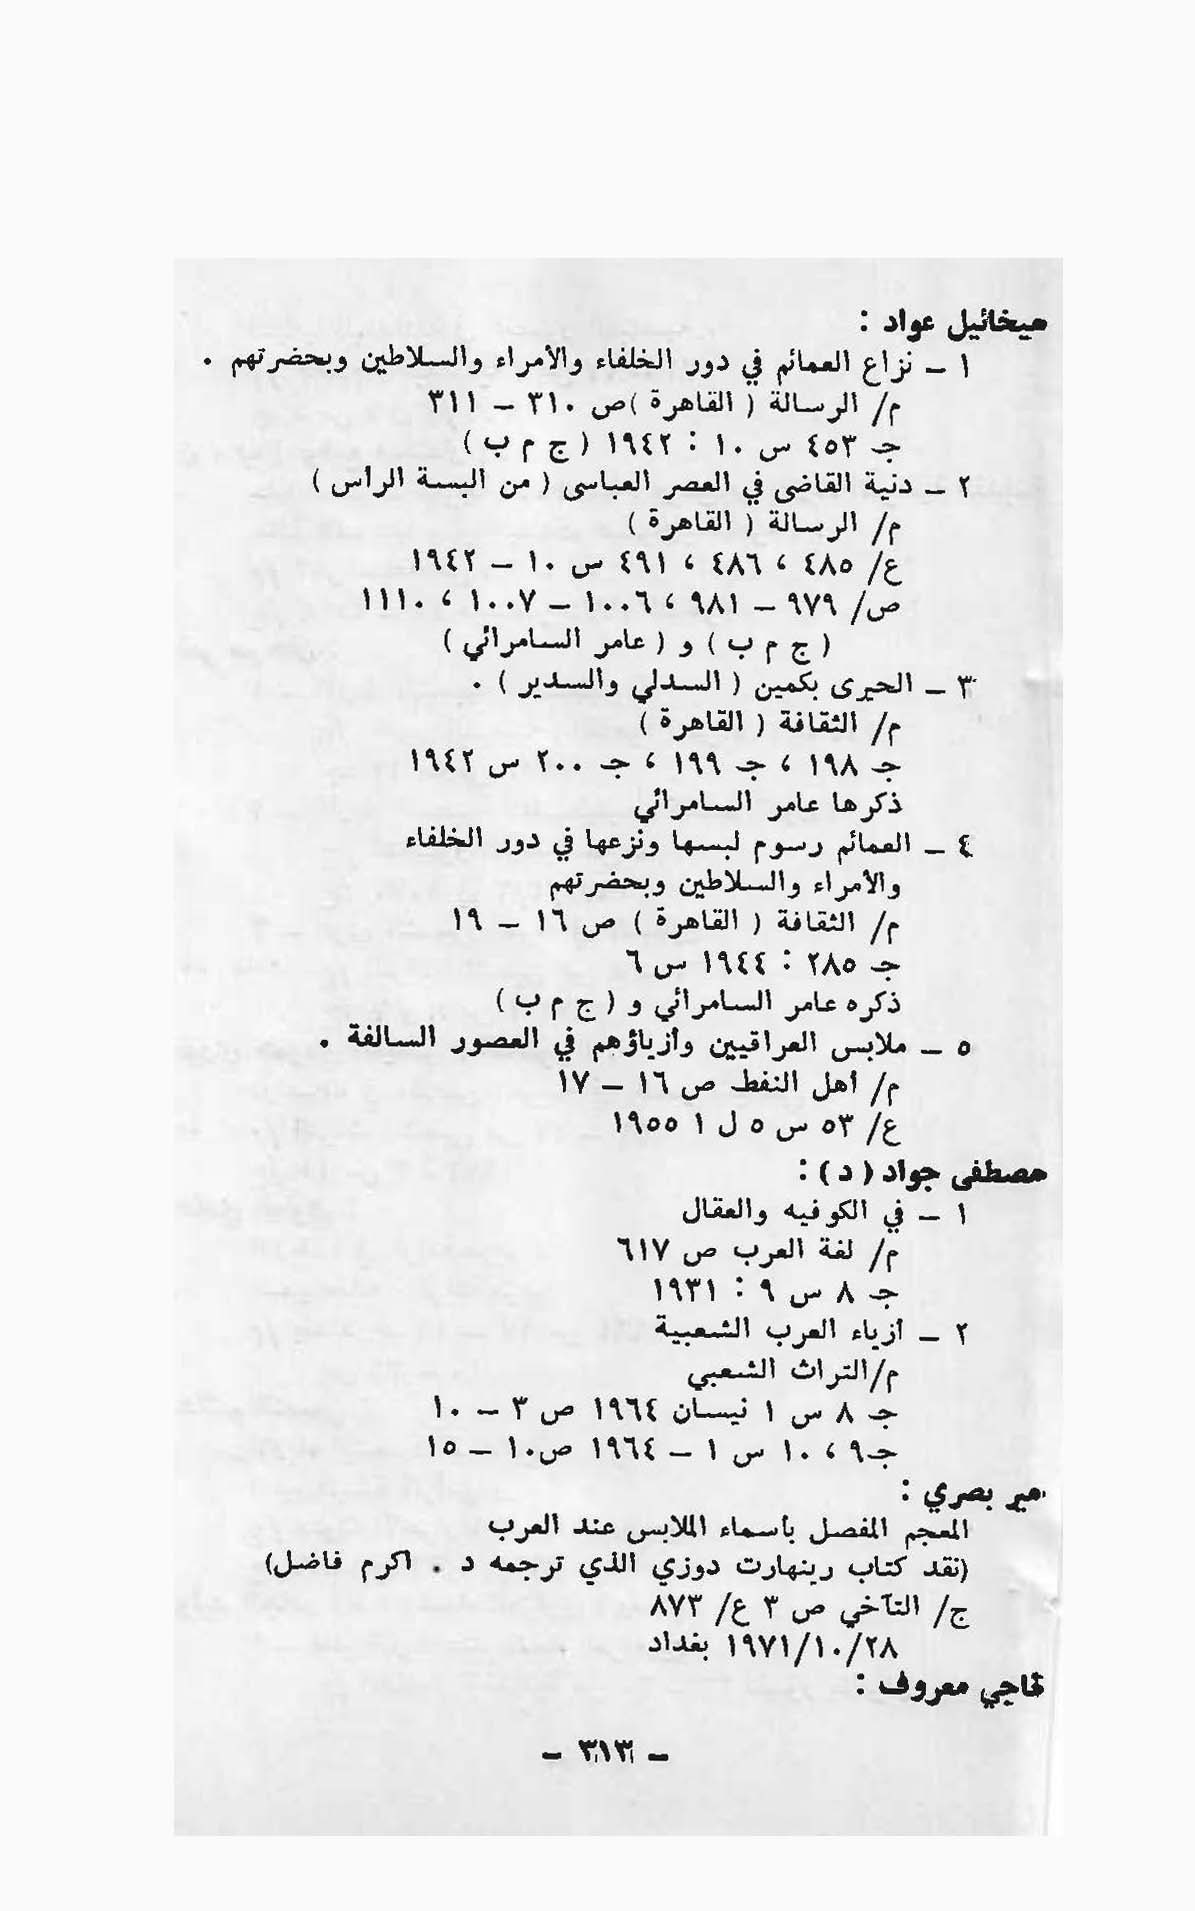 ميخائيل عواد :
١ – نزاع العمائم في دور الخلفاء والأمراء والسلاطين وبحضرتهم .
م/ الرسالة ( القاهرة )ص ٣١٠ – ٣١١
جـ ٤٥٣ س ١٠ : ١٩٤٢ ( ج م ب )
٢ – دنية القاضى في العصر العباسى ( من البسة الرأس )
م/ الرسالة ( القاهرة )
ع/ ٤٨٥ ، ٤٨٦ ، ٤٩١ س ١٠ – ١٩٤٢
ص/ ٩٧٩ – ٩٨١ ، ١٠٠٦ – ١٠٠٧ ، ١١١٠
( ج م ب ) و ( عامر السامرائي )
٣ – الحيرى بكمين ( السدلي والسدير ) .
م/ الثقافة ( القاهرة )
جـ ١٩٨ ، جـ ١٩٩ ، جـ ٢٠٠ س ١٩٤٢
ذكرها عامر السامرائي
٤ – العمائم رسوم لبسها ونزعها في دور الخلفاء
والأمراء والسلاطين وبحضرتهم
م/ الثقافة ( القاهرة ) ص ١٦ – ١٩
جـ ٢٨٥ : ١٩٤٤ س ٦
ذكره عامر السامرائي و ( ج م ب )
٥ – ملابس العراقيين وأزياؤهم في العصور السالفة .
م/ أهل النفط ص ١٦ – ١٧
ع/ ٥٣ س ٥ ل ١ ١٩٥٥
مصطفى جواد ( د ) :
١ – في الكوفيه والعقال
م/ لغة العرب ص ٦١٧
جـ ٨ س ٩ : ١٩٣١
٢ – أزياء العرب الشعبية
م/التراث الشعبي
جـ ٨ س ١ نيسان ١٩٦٤ ص ٣ – ١٠
جـ٩ ، ١٠ س ١ – ١٩٦٤ ص١٠ – ١٥
مير بصري :
المعجم المفصل بأسماء الملابس عند العرب
(نقد كتاب رينهارت دوزي الذي ترجمه د . اكرم فاضل)
ج/ التآخي ص ٣ ع/ ٨٧٣
١٩٧١/١٠/٢٨ بغداد
ناجي معروف :
– ٣١٣ –